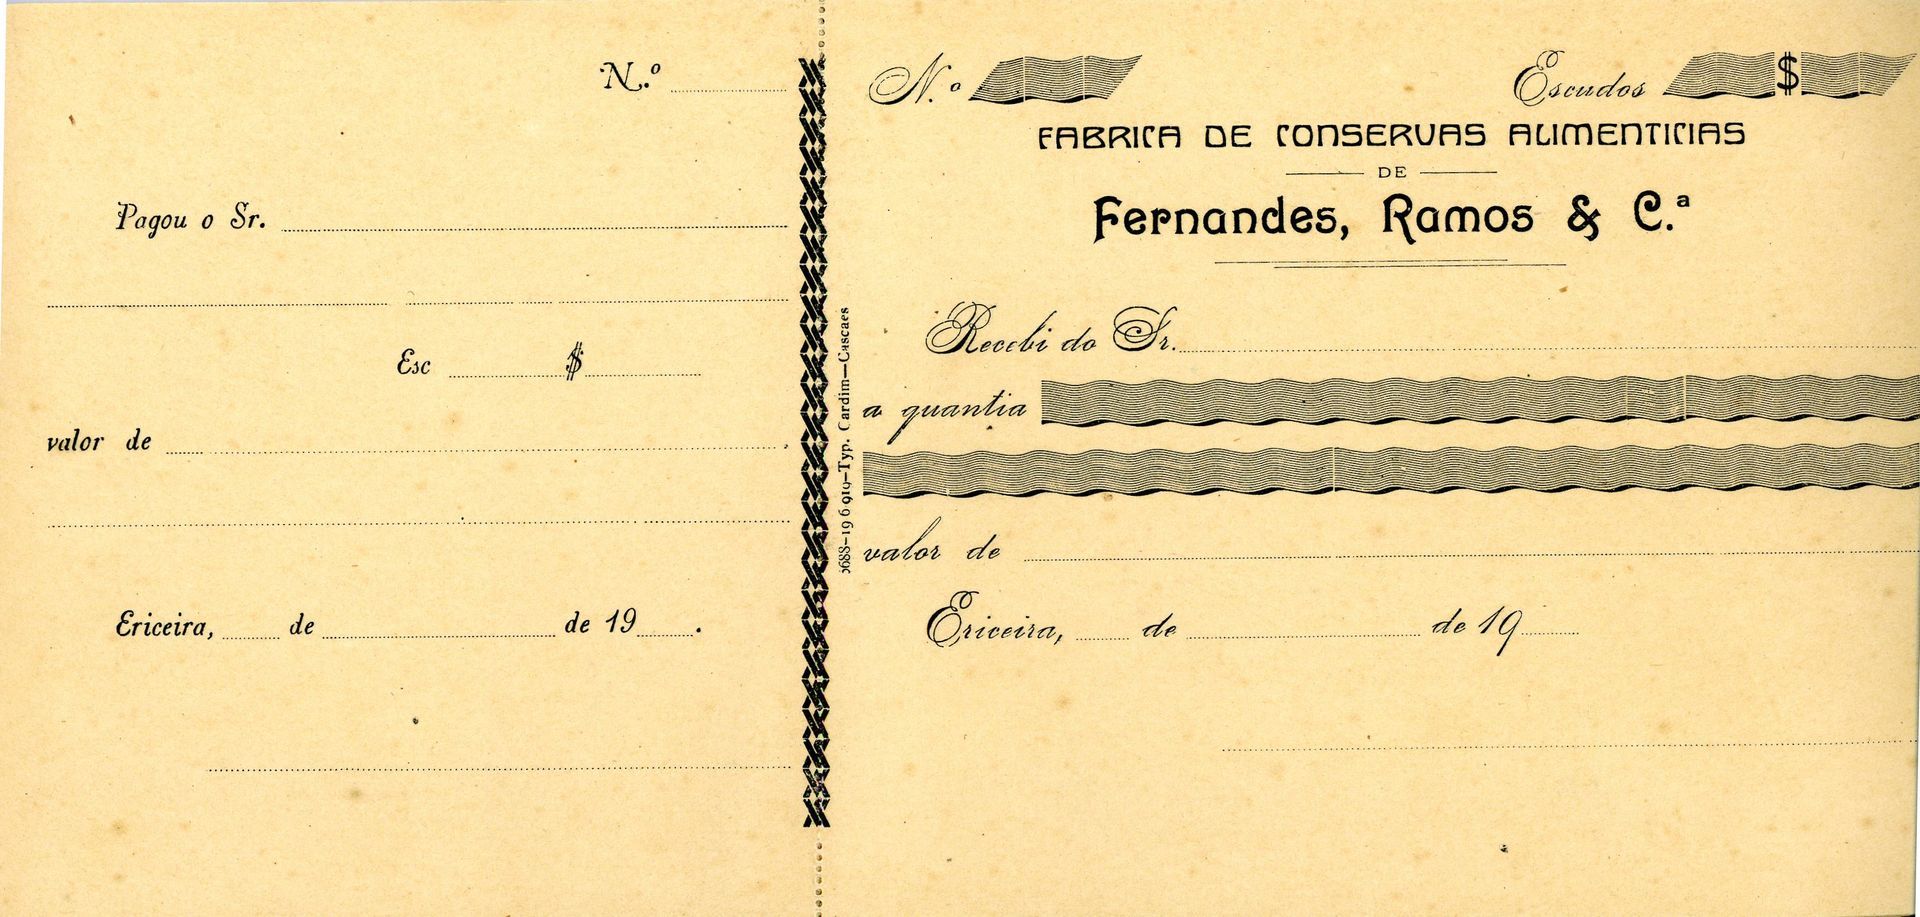 N.º
Pagou o Sr.
Esc $
valor de
Ericeira, de de 19 .
3688-19 6 919-Typ. Cardim-Cascaes
N.º Escudos $
FABRICA DE CONSERVAS ALIMENTICIAS
DE
Fernandes, Ramos & C.ª
Recebi do Sr.
a quantia
valor de
Ericeira, de de 19